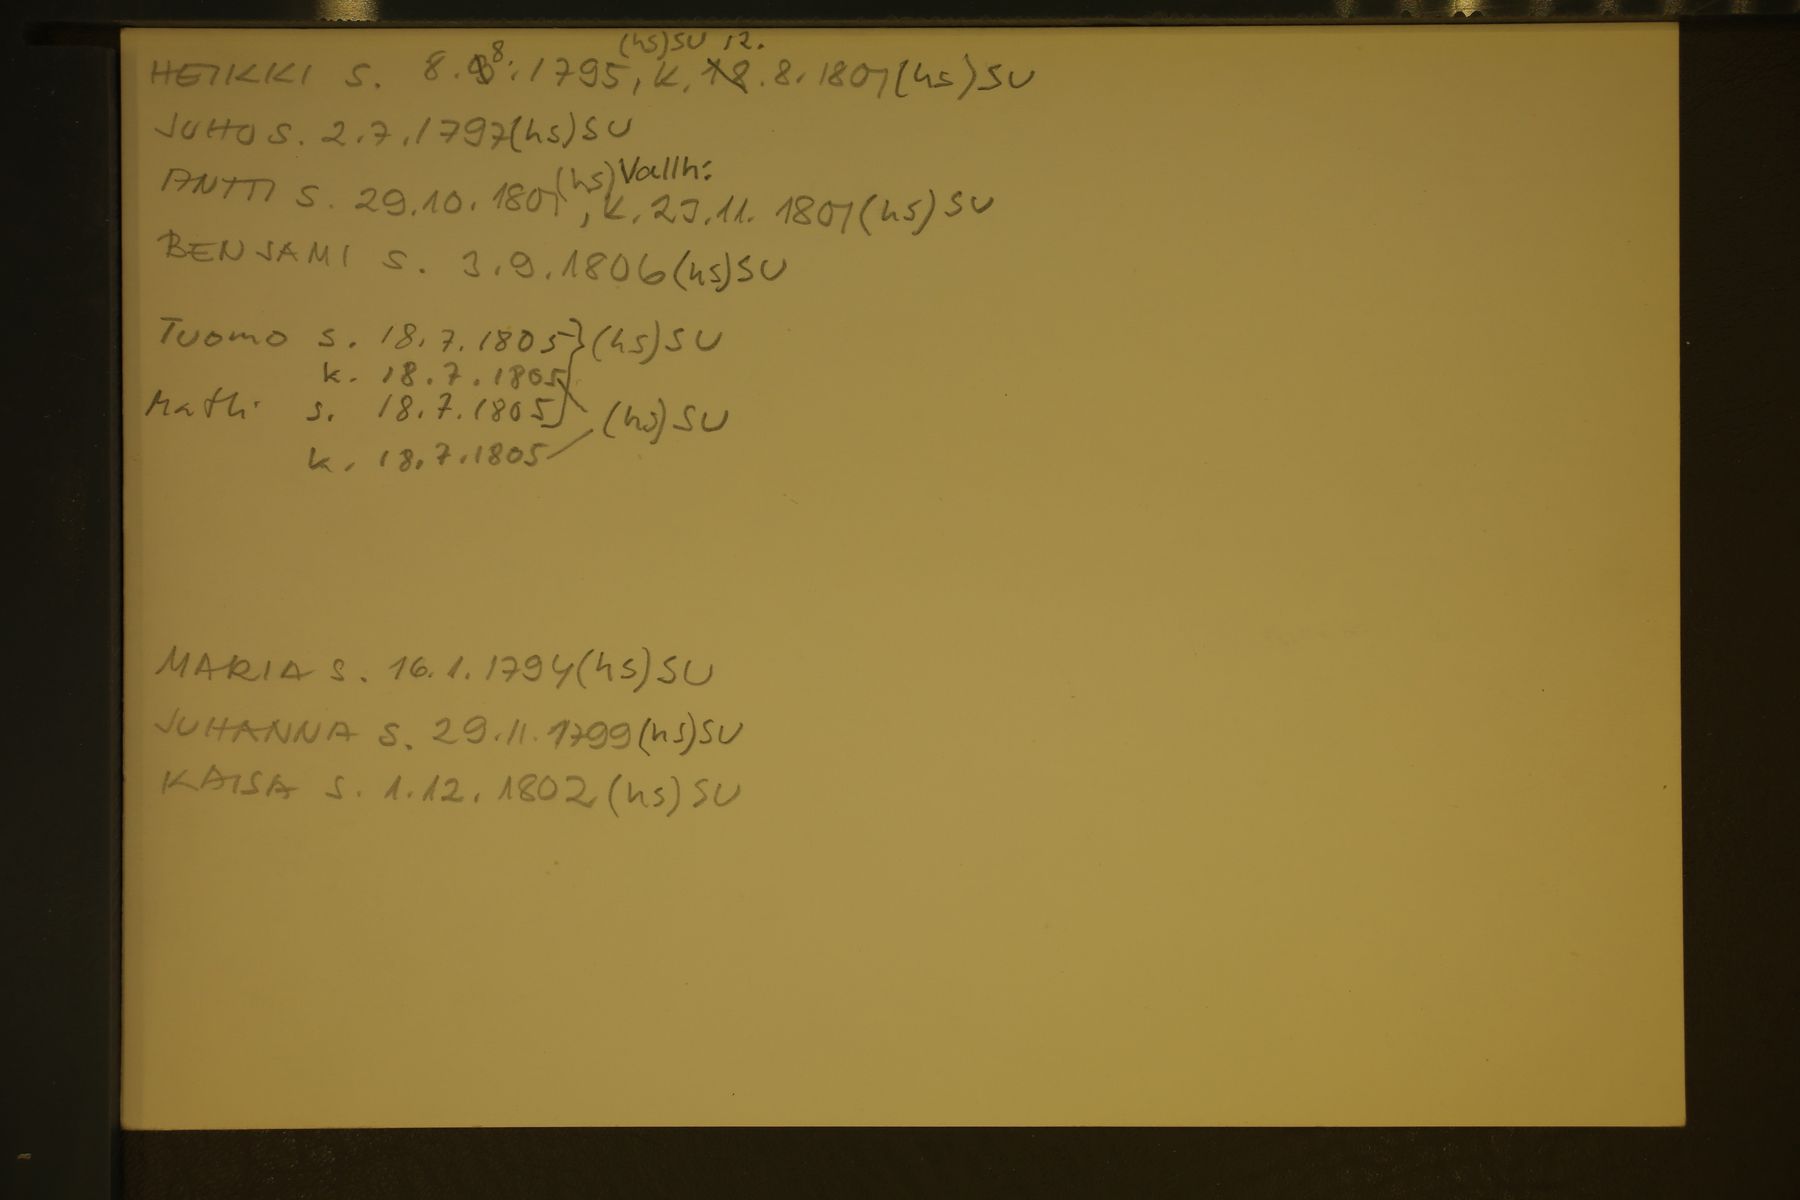 (hs)SU 12.
HEIKKI S. 8.8.1795, K. 18.8.1801(hs)SU
JUHO S. 2.7.1797(hs)SU
ANTTI S. 29.10.1801(hs)Vallh:, K. 23.11.1801(hs)SU
BENJAMI S. 3.9.1806(hs)SU
Tuomo s. 18.7.1805}(hs)SU
k. 18.7.1805
Matti s. 18.7.1805 (hs)SU
k. 18.7.1805
MARIA S. 16.1.1794(hs)SU
JUHANNA S. 29.11.1799(hs)SU
KAISA S. 1.12.1802(hs)SU